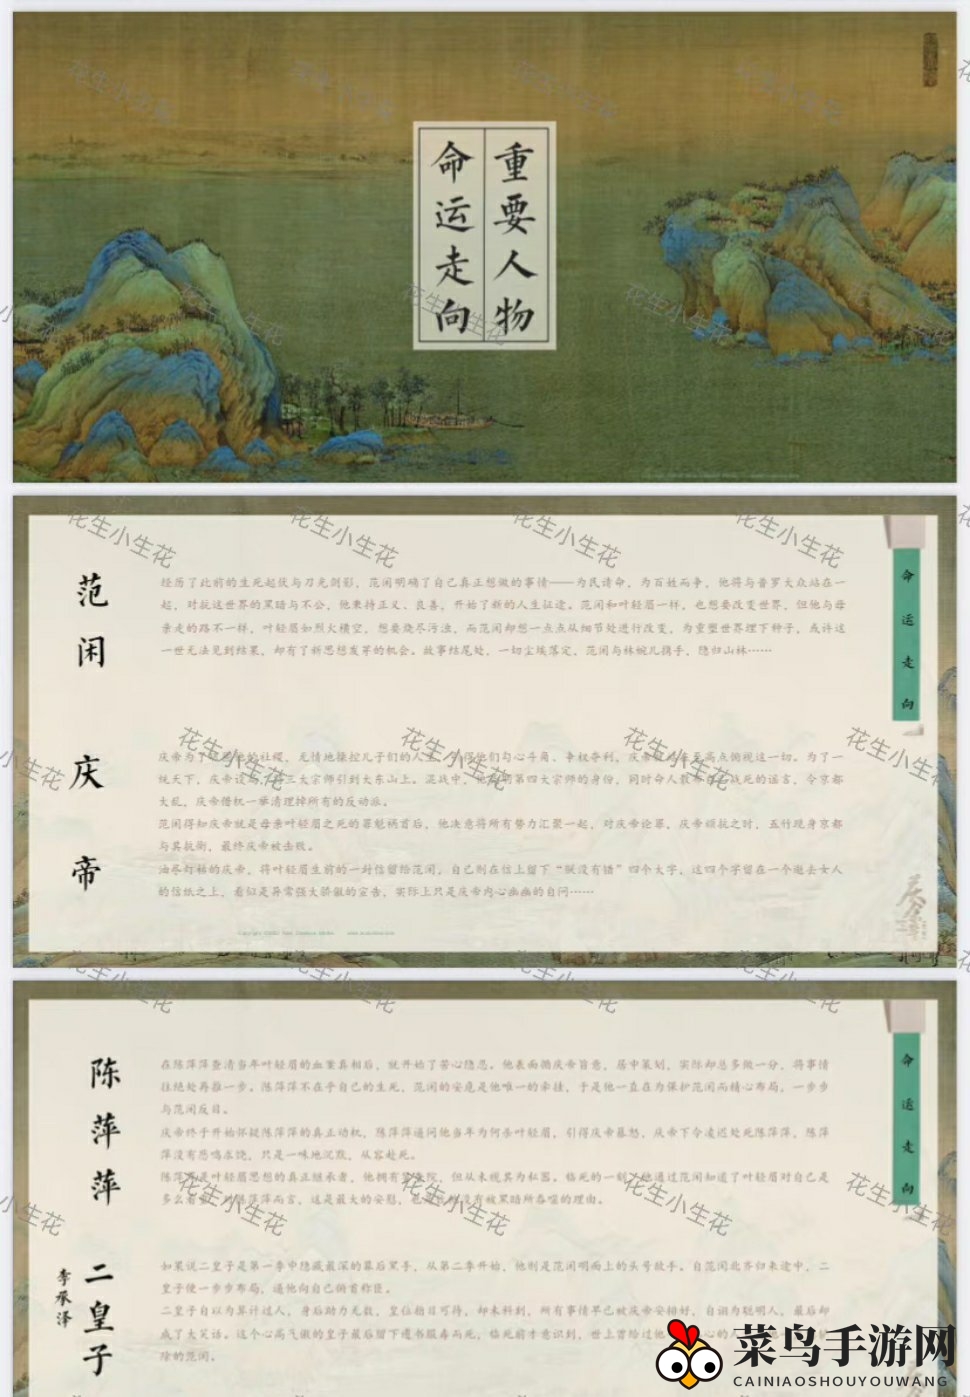 重要人物
命运走向
范闲
经历了此前的生死起伏与刀光剑影，范闲明确了自己真正想做的事情——为民请命，为百姓而争，他将与普罗大众站在一
起，对抗这世界的黑暗与不公，他秉持正义、良善，开始了新的人生征途。范闲和叶轻眉一样，也想要改变世界，但他与母
亲走的路不一样，叶轻眉如烈火横空，想要烧尽污浊，而范闲却想一点点从细节处进行改变，为重塑世界埋下种子，或许这
一世无法见到结果，却有了新思想发芽的机会。故事结尾处，一切尘埃落定，范闲与林婉儿携手，隐归山林……
命运走向
庆帝
庆帝为了 的社稷，无情地操控儿子们的人生， 得他们勾心斗角、争权夺利，庆帝 至高点俯视这一切。为了一
统天下，庆帝设 三大宗师引到大东山上。混战中，他 第四大宗师的身份，同时令人散布 战死的谣言，令京都
大乱，庆帝借机一举清理掉所有的反动派。
范闲得知庆帝就是母亲叶轻眉之死的罪魁祸首后，他决意将所有势力汇聚一起，对庆帝论罪，庆帝顽抗之时，五竹现身京都
与其抗衡，最终庆帝被击毙。
油尽灯枯的庆帝，将叶轻眉生前的一封信留给范闲，自己则在信上留下“朕没有错”四个大字，这四个字留在一个逝去女人
的信纸之上，看似是异常强大骄傲的宣告，实际上只是庆帝内心幽幽的自问……
陈萍萍
在陈萍萍查清当年叶轻眉的血案真相后，就开始了苦心隐忍。他表面循庆帝旨意，居中策划，实际却总多做一分，将事情
往绝处再推一步。陈萍萍不在乎自己的生死，范闲的安危是他唯一的牵挂，于是他一直在为保护范闲而精心布局，一步步
与范闲反目。
庆帝终于开始怀疑陈萍萍的真正动机，陈萍萍逼问他当年为何杀叶轻眉，引得庆帝暴怒，庆帝下令凌迟处死陈萍萍，陈萍
萍没有悲鸣求饶，只是一味地沉默，从容赴死。
陈萍萍是叶轻眉思想的真正继承者，他拥有 院，但从未视其为私器。临死的一刻，他通过范闲知道了叶轻眉对自己是
多么 陈萍萍而言，这是最大的安慰，也 没有被黑暗所吞噬的理由。
命运走向
二皇子
李承泽
如果说二皇子是第一季中隐藏最深的幕后黑手，从第二季开始，他则是范闲明面上的头号敌手。自范闲北齐归来途中，二
皇子便一步步布局，逼他向自己俯首称臣。
二皇子自以为算计过人，身后助力无数，皇位指日可待，却未料到，所有事情早已被庆帝安排好，自诩为聪明人，最后却
成了大笑话。这个心高气傲的皇子最后留下遗书服毒而死，临死前才意识到，世上曾给过他 心的人
除的范闲。
花生小生花
菜鸟手游网
CAINIAOSHOUYOUWANG